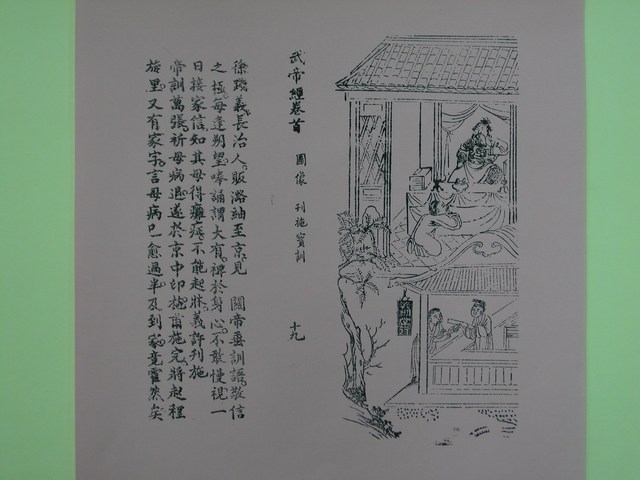 武帝經卷首 圖像 刊施寶訓 十九
徐義長治人販潞紬至京見 關帝垂訓語敬信
之極每逢朔望誦謂大有裨於身心不敢慢視一
日接家信知其母得癱瘓不能起牀義許刊施
帝訓萬張祈母病退遂於京中印施完將起程
旋里又有家字言母病已愈過半及到家竟霍然矣